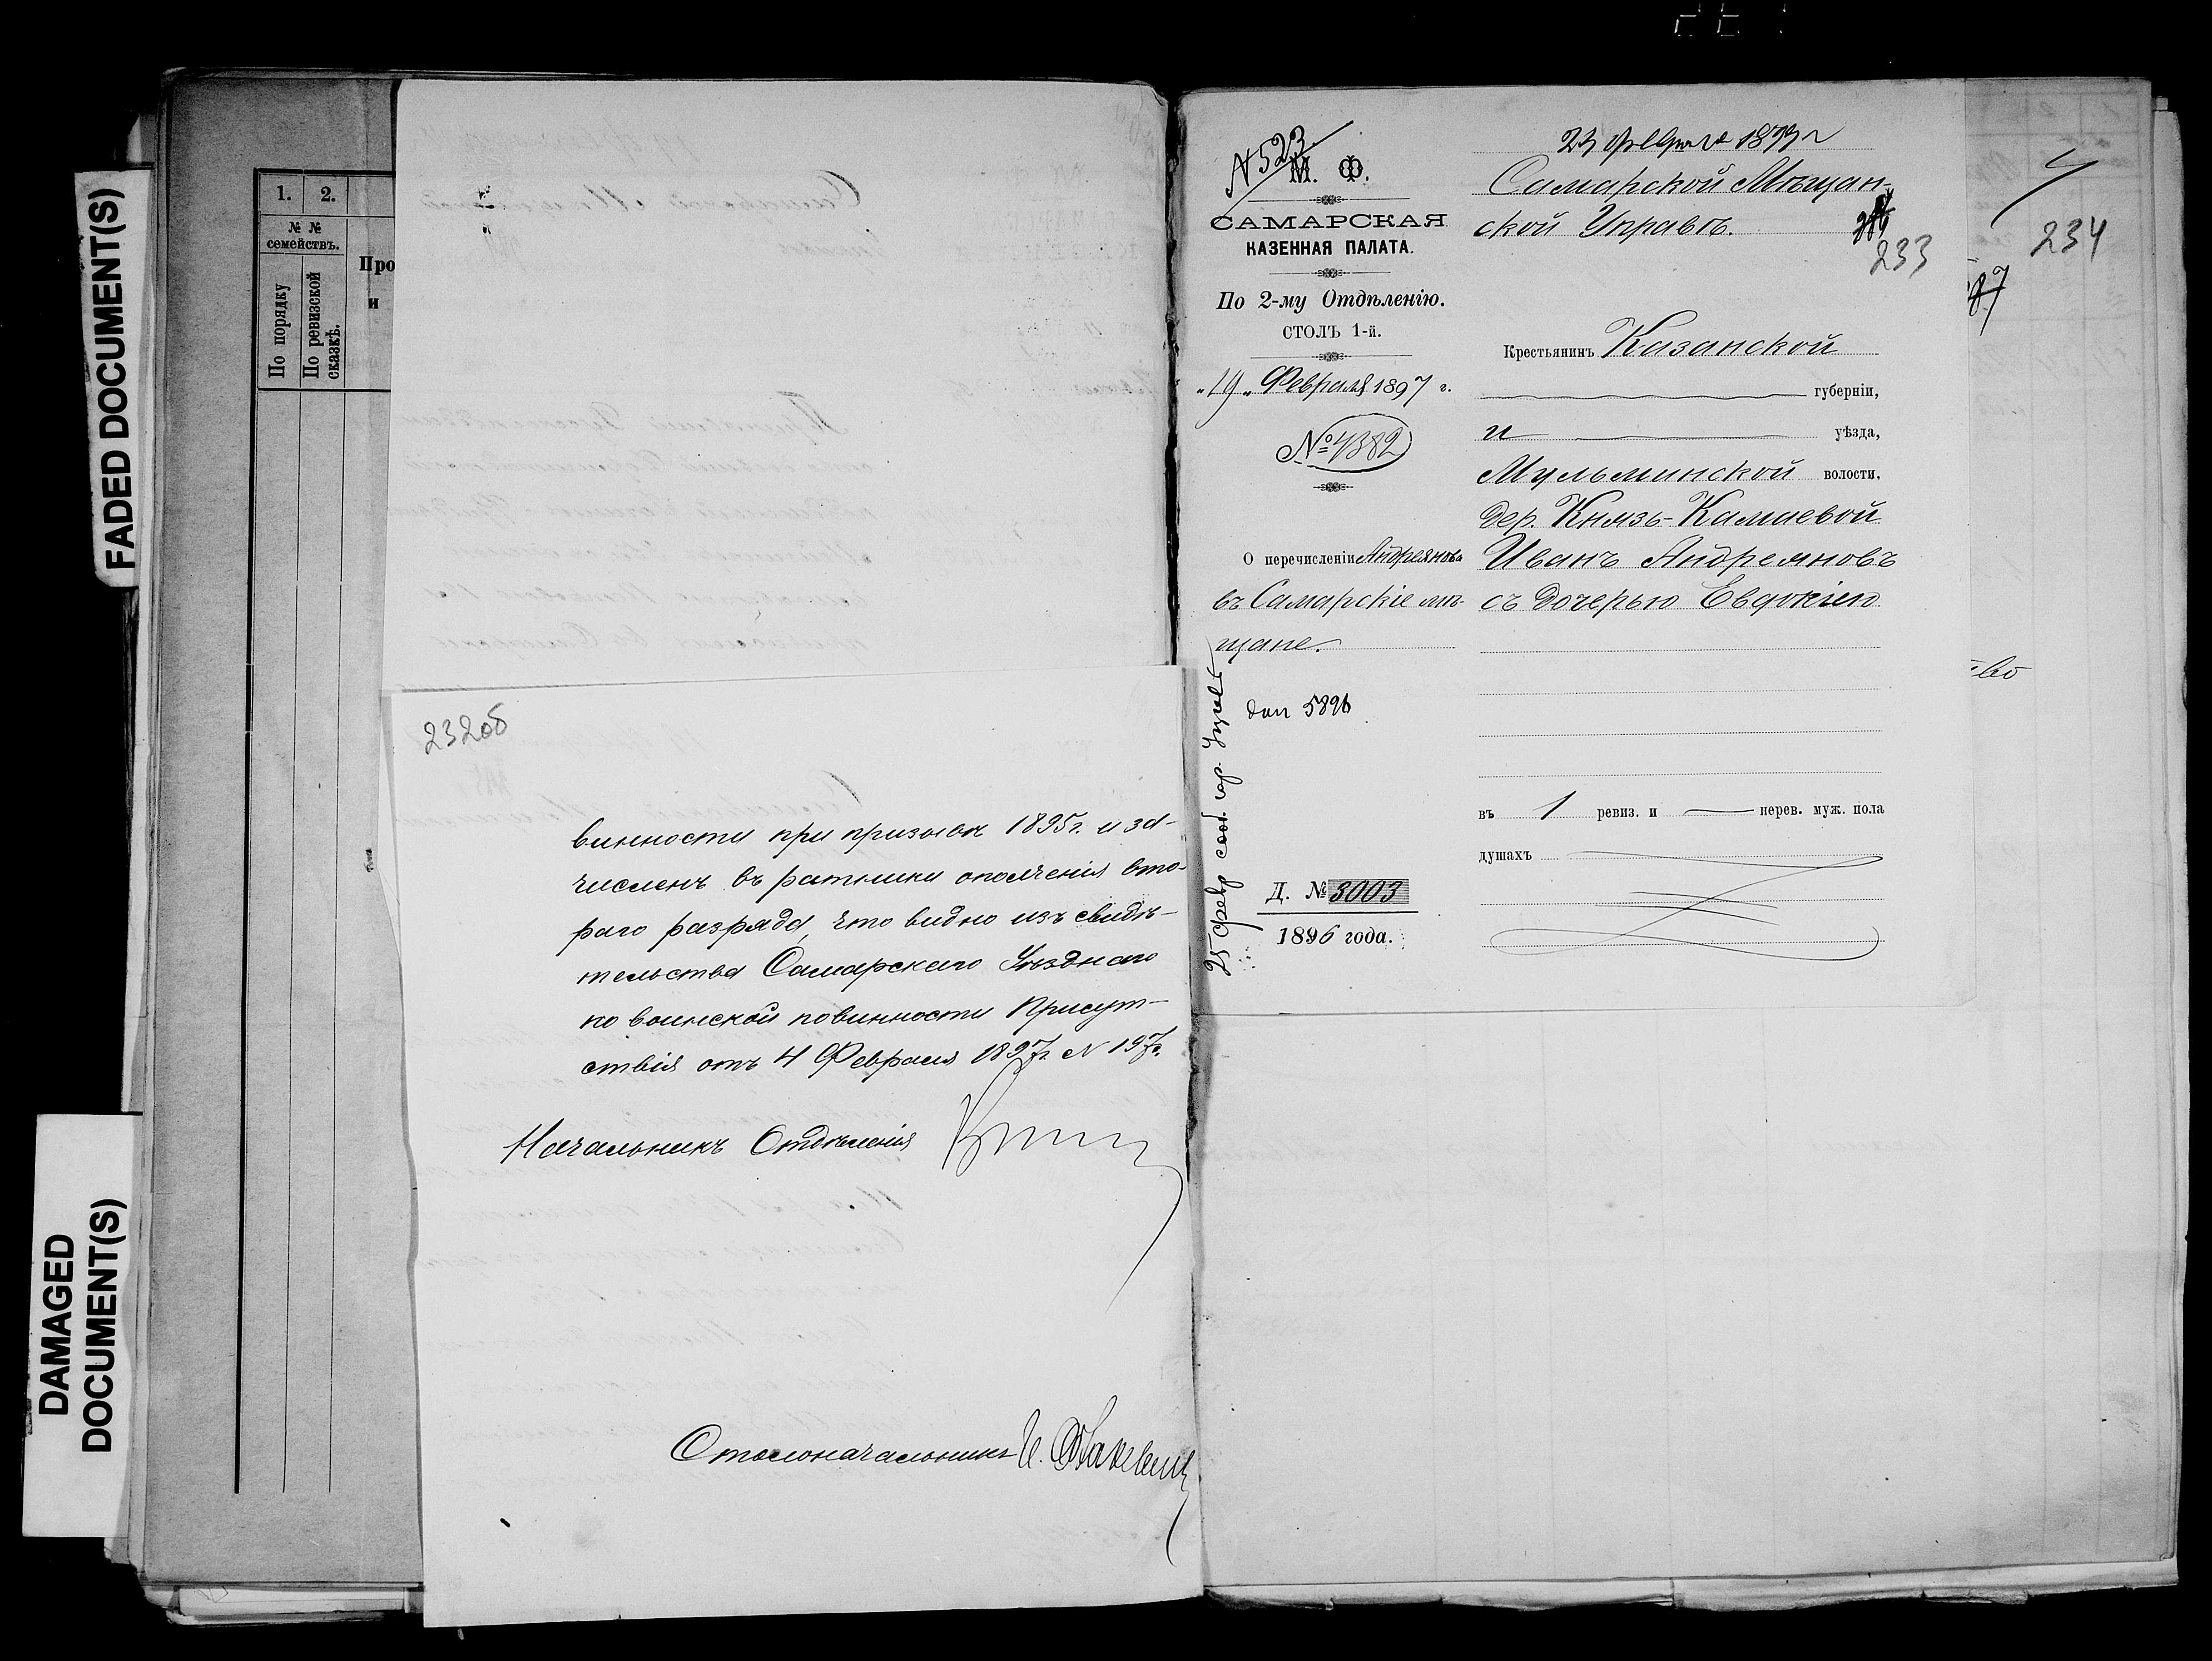 FADED DOCUMENT(S)
DAMAGED
DOCUMENT(S)
1. 2.
№ №
семействъ.
По порядку
По ревизской
сказкѣ.
Про
и
232об
винности при призывѣ 1895г. и за-
численъ въ ратники ополченія вто-
раго разряда, что видно изъ свидѣ-
тельства Самарскаго Уѣзднаго
по воинской повинности Присут-
ствія отъ 4 Февраля 1897г. N 197.
Начальникъ Отдѣленія
Столоначальникъ И.
N 523
М. Ф.
САМАРСКАЯ
КАЗЕННАЯ ПАЛАТА.
По 2-му Отдѣленію.
СТОЛЪ 1-й.
„19„ Февраля 1897 г.
№ 4382
О перечисленіи Андреянова
въ Самарскіе мѣ-
щане.
25 февр сооб. гор.
Д. № 3003
1896 года.
23 февраля 1897 г
Самарской Мѣщан-
ской Управѣ.
233
Крестьянинъ Казанской
губерніи,
и уѣзда,
Мульминской волости,
дер. Князь-Камаевой
Иванъ Андреяновъ
съ дочерью Евдокіею
въ 1 ревиз. и — нерев. муж. пола
душахъ
234
87
-во